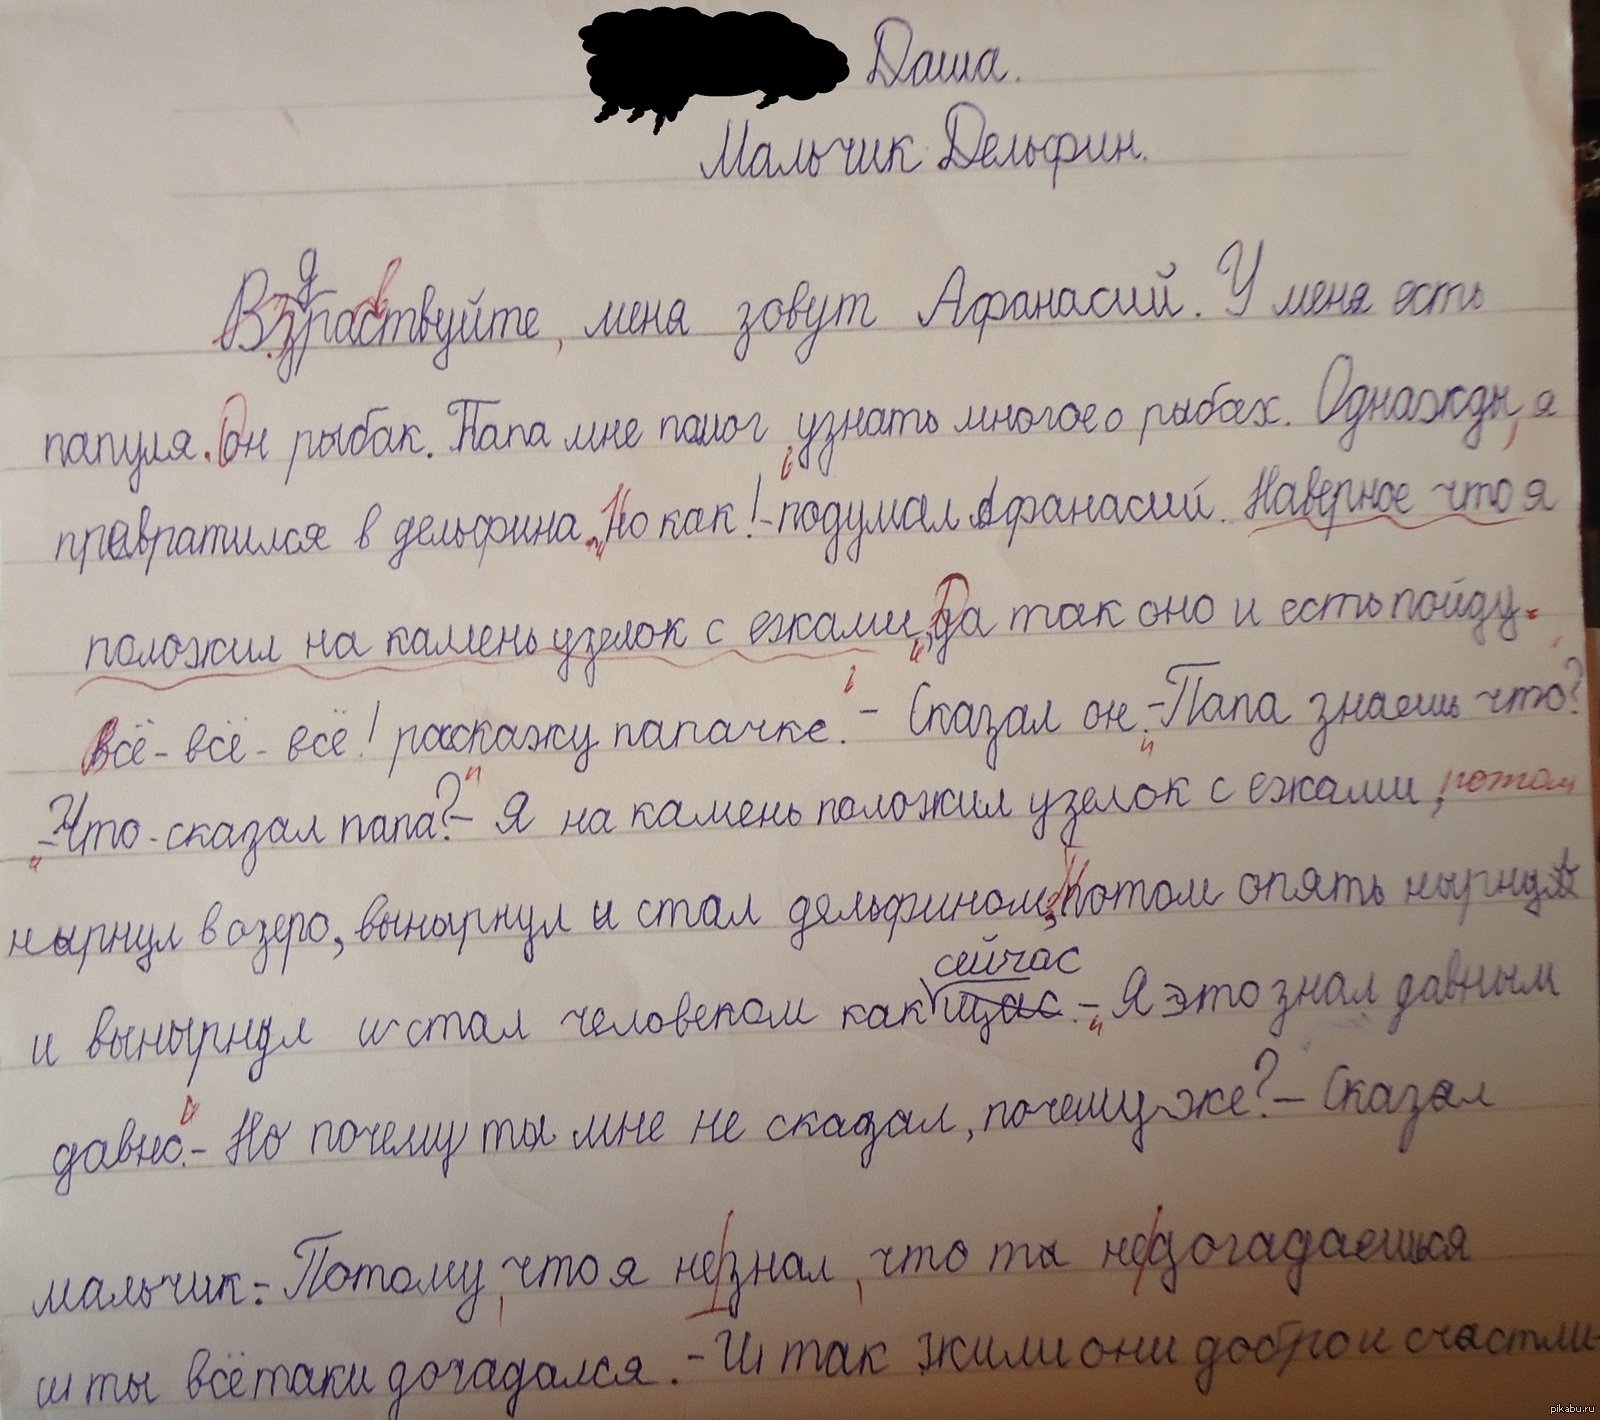 Даша.
Мальчик Дельфин.
Вздраствуйте, меня зовут Афанасий. У меня есть
папуля. Он рыбак. Папа мне помог узнать многое о рыбах. Однажды, я
превратился в дельфина. „Но как! - подумал Афанасий. Наверное что я
положил на камень узелок с ежами, Да так оно и есть пойду
всё-всё-всё! раскажу папачке. - Сказал он. - Папа знаешь что?
- Что - сказал папа? - Я на камень положил узелок с ежами, потом
нырнул в озеро, вынырнул и стал дельфином, Потом опять нырнул
сейчас
и вынырнул и стал человеком как щас. - Я это знал давным
давно. - Но почему ты мне не сказал, почему же? - Сказал
мальчик: - Потому, что я не знал, что ты не догадаешься
и ты всётаки догадался. - И так жили они добро и счастли-
pikabu.ru